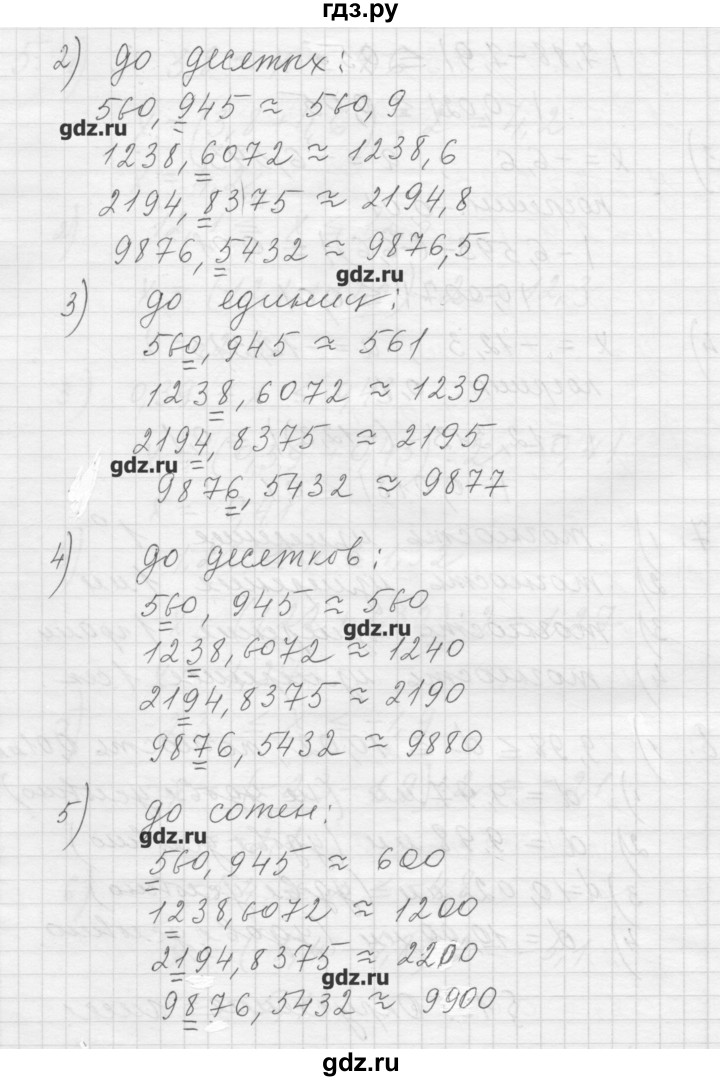 гдз.ру
2) до десятых:
560,945 ≈ 560,9
gdz.ru
1238,6072 ≈ 1238,6
2194,8375 ≈ 2194,8
9876,5432 ≈ 9876,5
gdz.ru
3) до единиц:
560,945 ≈ 561
1238,6072 ≈ 1239
2194,8375 ≈ 2195
gdz.ru
9876,5432 ≈ 9877
4) до десятков:
560,945 ≈ 560
gdz.ru
1238,6072 ≈ 1240
2194,8375 ≈ 2190
9876,5432 ≈ 9880
5) до сотен:
gdz.ru
560,945 ≈ 600
1238,6072 ≈ 1200
2194,8375 ≈ 2200
gdz.ru
9876,5432 ≈ 9900
gdz.ru